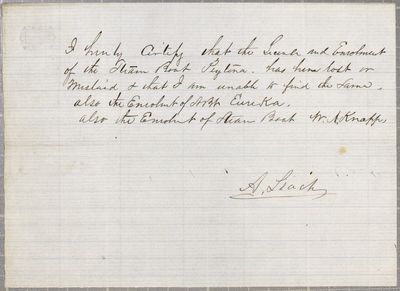 I hereby Certify that the License and Enrolment
of the Steam Boat Peytona. has been lost or
Mislaid & that I am unable to find the Same.
also the Enrolmt of St Bt Eureka.
also the Enrolmt of Steam Boat W. A Knapp,
A.